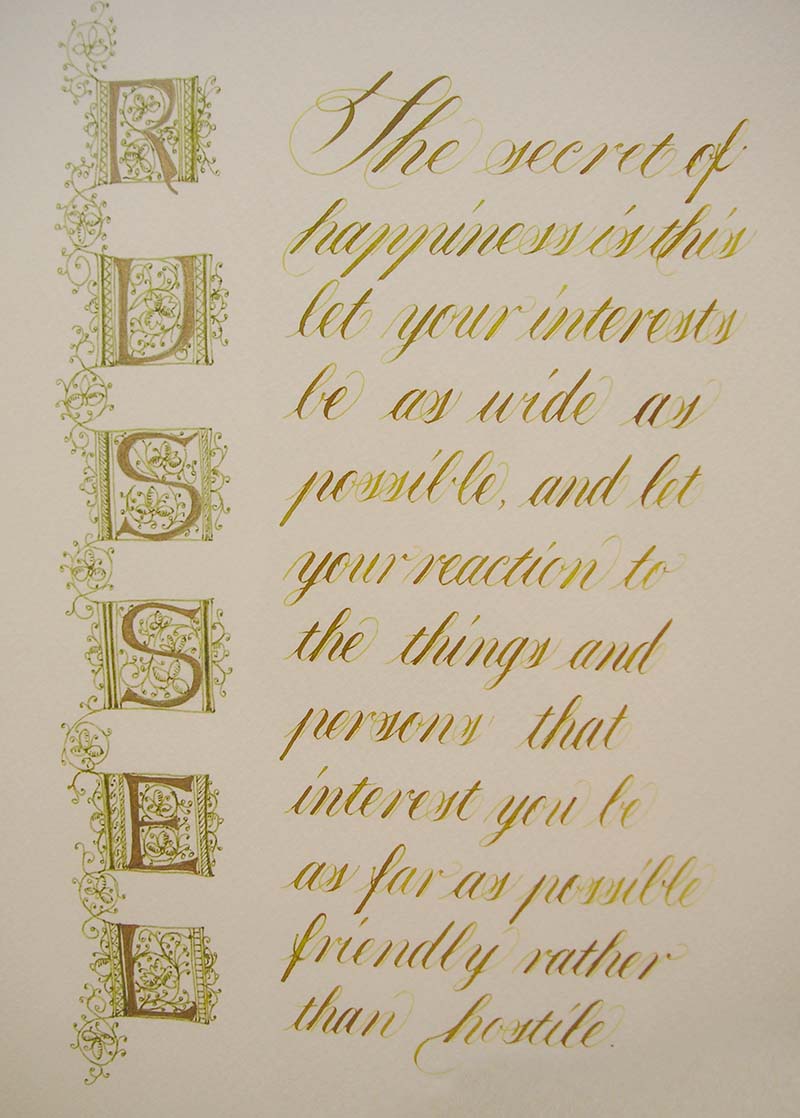 R
U
S
S
E
L
The secret of
happiness is this
let your interests
be as wide as
possible, and let
your reaction to
the things and
persons that
interest you be
as far as possible
friendly rather
than hostile.